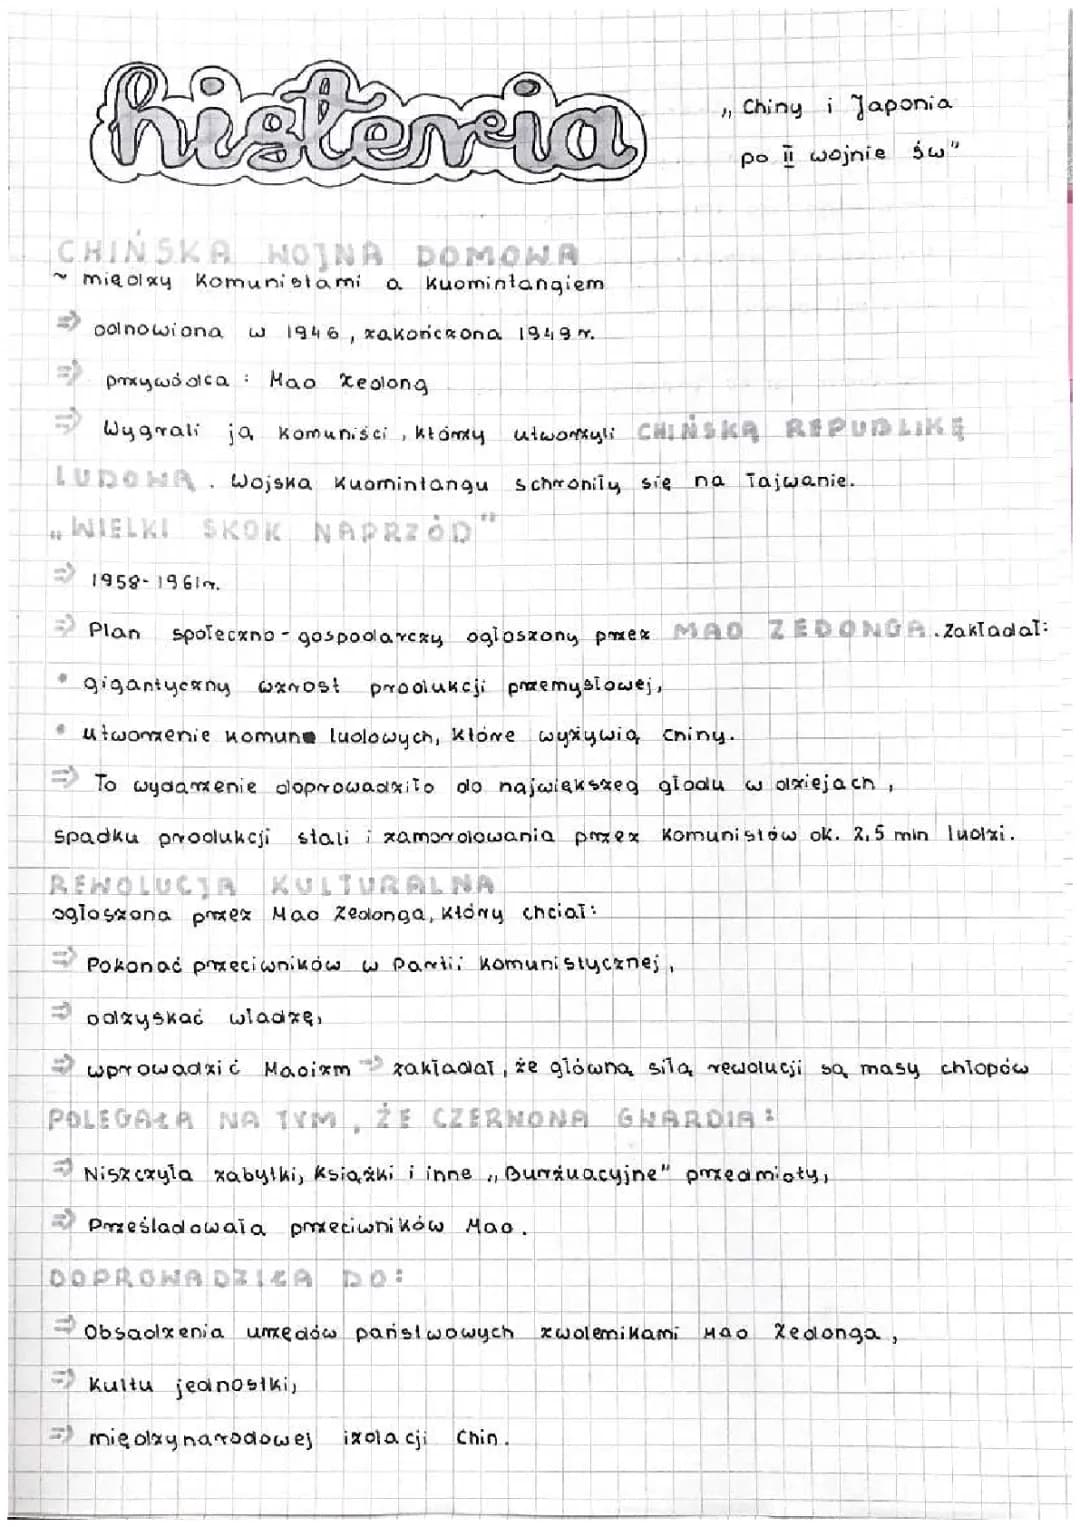 historia
„Chiny i Japonia
po II wojnie św"
CHIŃSKA WOJNA DOMOWA
~ między Komunistami a Kuomintangiem
⇒ odnowiona w 1946, zakończona 1949 r.
⇒ przywódca : Mao Zedong
⇒ Wygrali ją Komuniści, którzy utworzyli CHIŃSKĄ REPUBLIKĘ
LUDOWĄ. Wojska Kuomintangu schroniły się na Tajwanie.
„WIELKI SKOK NAPRZÓD"
⇒ 1958-1961r.
⇒ Plan społeczno-gospodarczy ogłoszony przez MAO ZEDONGA. Zakładał:
• gigantyczny wzrost produkcji przemysłowej,
• utworzenie komun ludowych, które wyżywią Chiny.
⇒ To wydarzenie doprowadziło do największeg głodu w dziejach,
spadku produkcji stali i zamordowania przez Komunistów ok. 2,5 mln ludzi.
REWOLUCJA KULTURALNA
ogłoszona przez Mao Zedonga, który chciał:
⇒ Pokonać przeciwników w Partii Komunistycznej,
⇒ odzyskać władzę,
⇒ wprowadzić Maoizm ⇒ zakładał, że główną siłą rewolucji są masy chłopów
POLEGAŁA NA TYM, ŻE CZERWONA GWARDIA:
⇒ Niszczyła zabytki, Książki i inne „Burżuacyjne" przedmioty,
⇒ Prześladowała przeciwników Mao.
DOPROWADZIŁA DO:
⇒ Obsadzenia urzędów państwowych zwolenikami Mao Zedonga,
⇒ Kultu jednostki,
⇒ międzynarodowej izolacji Chin.